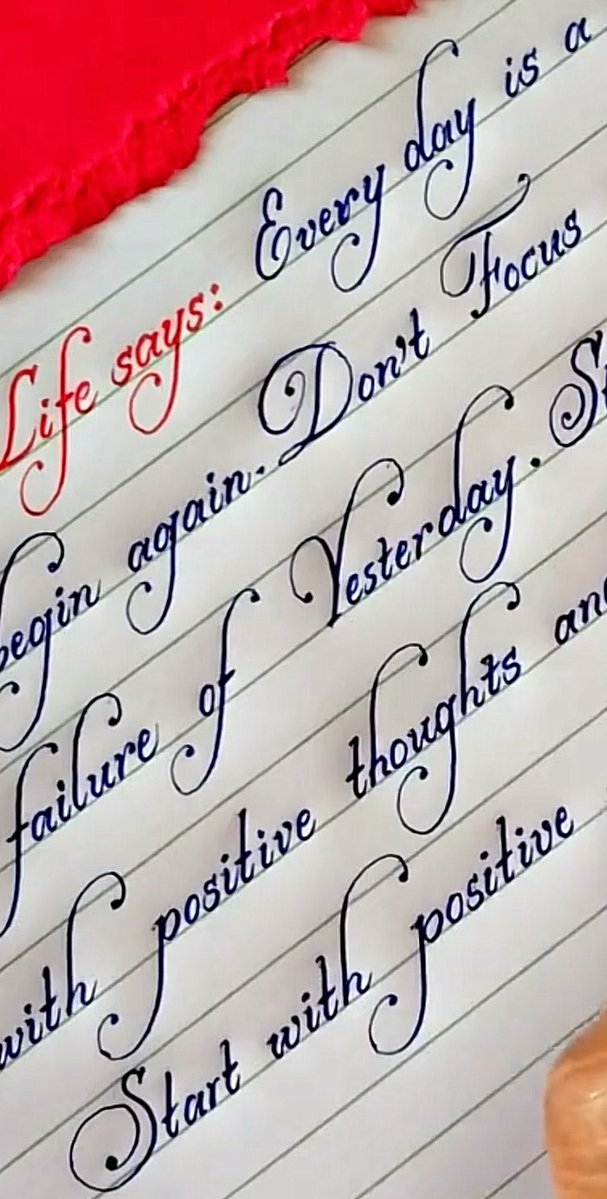 Life says: Every day is a
begin again. Don't Focus
failure of Yesterday.
with positive thoughts
Start with positive